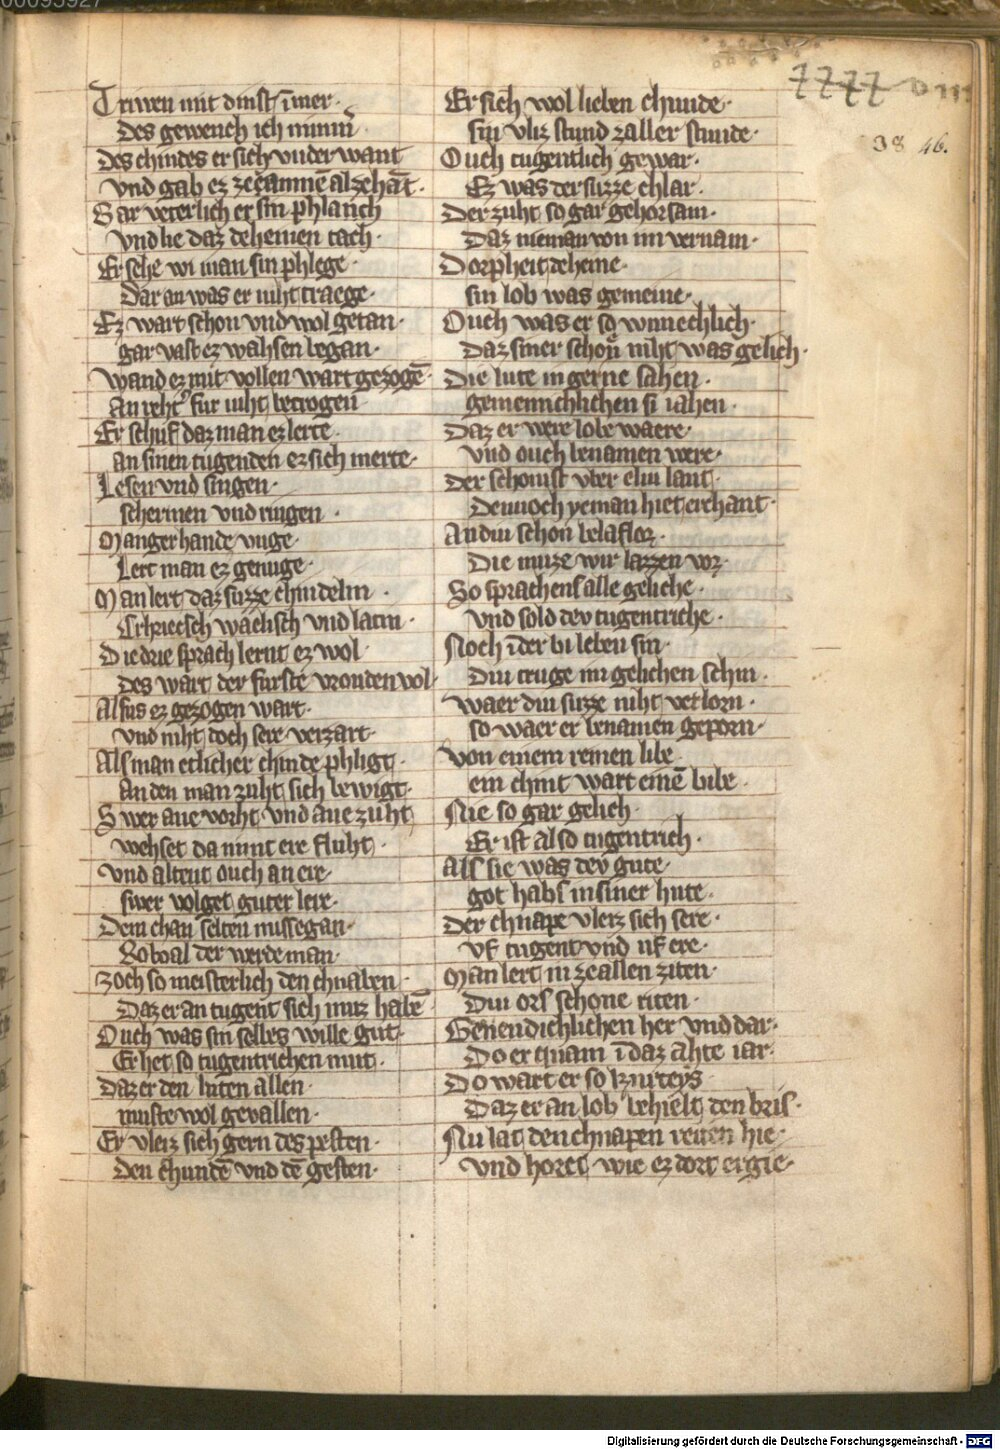 00095927
7777 D iii
38 46.
Triwen mit dinst ī mer·
Des geweuch ich nimm̄
Des chindes er sich vnder want
vnd gab ez ze ammē alzehāt·
Gar veterlich er sin phlach
vnd lie daz deheinen tach·
Er sehe wi man sin phlege·
Dar an was er niht traege·
Ez wart schon vnd wol getan·
gar vast ez wahsen began·
wand ez mit vollen wart gezogē
An reht fur niht betrogen
Er schuf daz man ez lerte·
an sinen tugenden ez sich merte·
Lesen vnd singen·
schermen vnd ringen·
Manger hande vuge·
Lert man ez genuge·
Man lert daz suzze chindelin·
Chriecsch waelisch vnd latin·
Die drie sprach lernt ez wol·
des wart der furste vronden vol·
Alsus ez gezogen wart·
vnd niht doch sere verzart·
Als man etlicher chinde phligt·
An den man zuht sich bewigt·
Swer ane vorht vnd ane zuht
wehset da nimt ere fluht·
vnd altent ouch an ere·
swer volget guter lere·
Dem chan selten missegan·
Lobval der werde man·
zoch so meisterlich den chnaben·
Daz er an tugent sich muz habē
Ouch was sin selbes wille gut·
Er het so tugentrichen mut·
Daz er den luten allen·
muste wol gevallen·
Er vleiz sich gern des pesten·
den chundē vnd dē gesten·
Er sich wol lieben chunde·
sin vliz stund zaller stunde·
Ouch tugentlich gewar·
Ez was der suzze chlar·
Der zuht so gar gehorsam·
Daz nieman von im vernam·
Dorpheit deheine·
sin lob was gemeine·
Ouch was er so wnnechlich·
Daz siner schon niht was gelich·
Die lute in gerne sahen·
gemeinchlichen si iahen·
Daz er were lobe waere·
vnd ouch benamen were·
Der schonist vber elliu lant·
Dennoch yeman hiet erchant·
An diu schon belaflor·
Die muze wir lazzen vor·
So sprachens alle geliche·
vnd sold dev tugentriche·
Noch īder bi leben sin·
Diu truge im gelichen schin·
waer diu suzze niht verlorn·
so waer er benamen geporn·
von einem reinen libe
ein chint wart einē bilde·
Nie so gar gelich·
Er ist also tugentrich·
Als sie was dev gute·
got habs in siner hute·
Der chnape vleiz sich sere·
vf tugent vnd uf ere·
Man lert in ze allen ziten·
Diu ors schone riten·
Genendichlichen her vnd dar·
Do er quam ī daz ahte iar·
Do wart er so kurteys
Daz er an lob behielt den bris·
Nu lat den chnapen reiten hie·
vnd horet wie ez dort ergie·
Digitalisierung gefördert durch die Deutsche Forschungsgemeinschaft - DFG